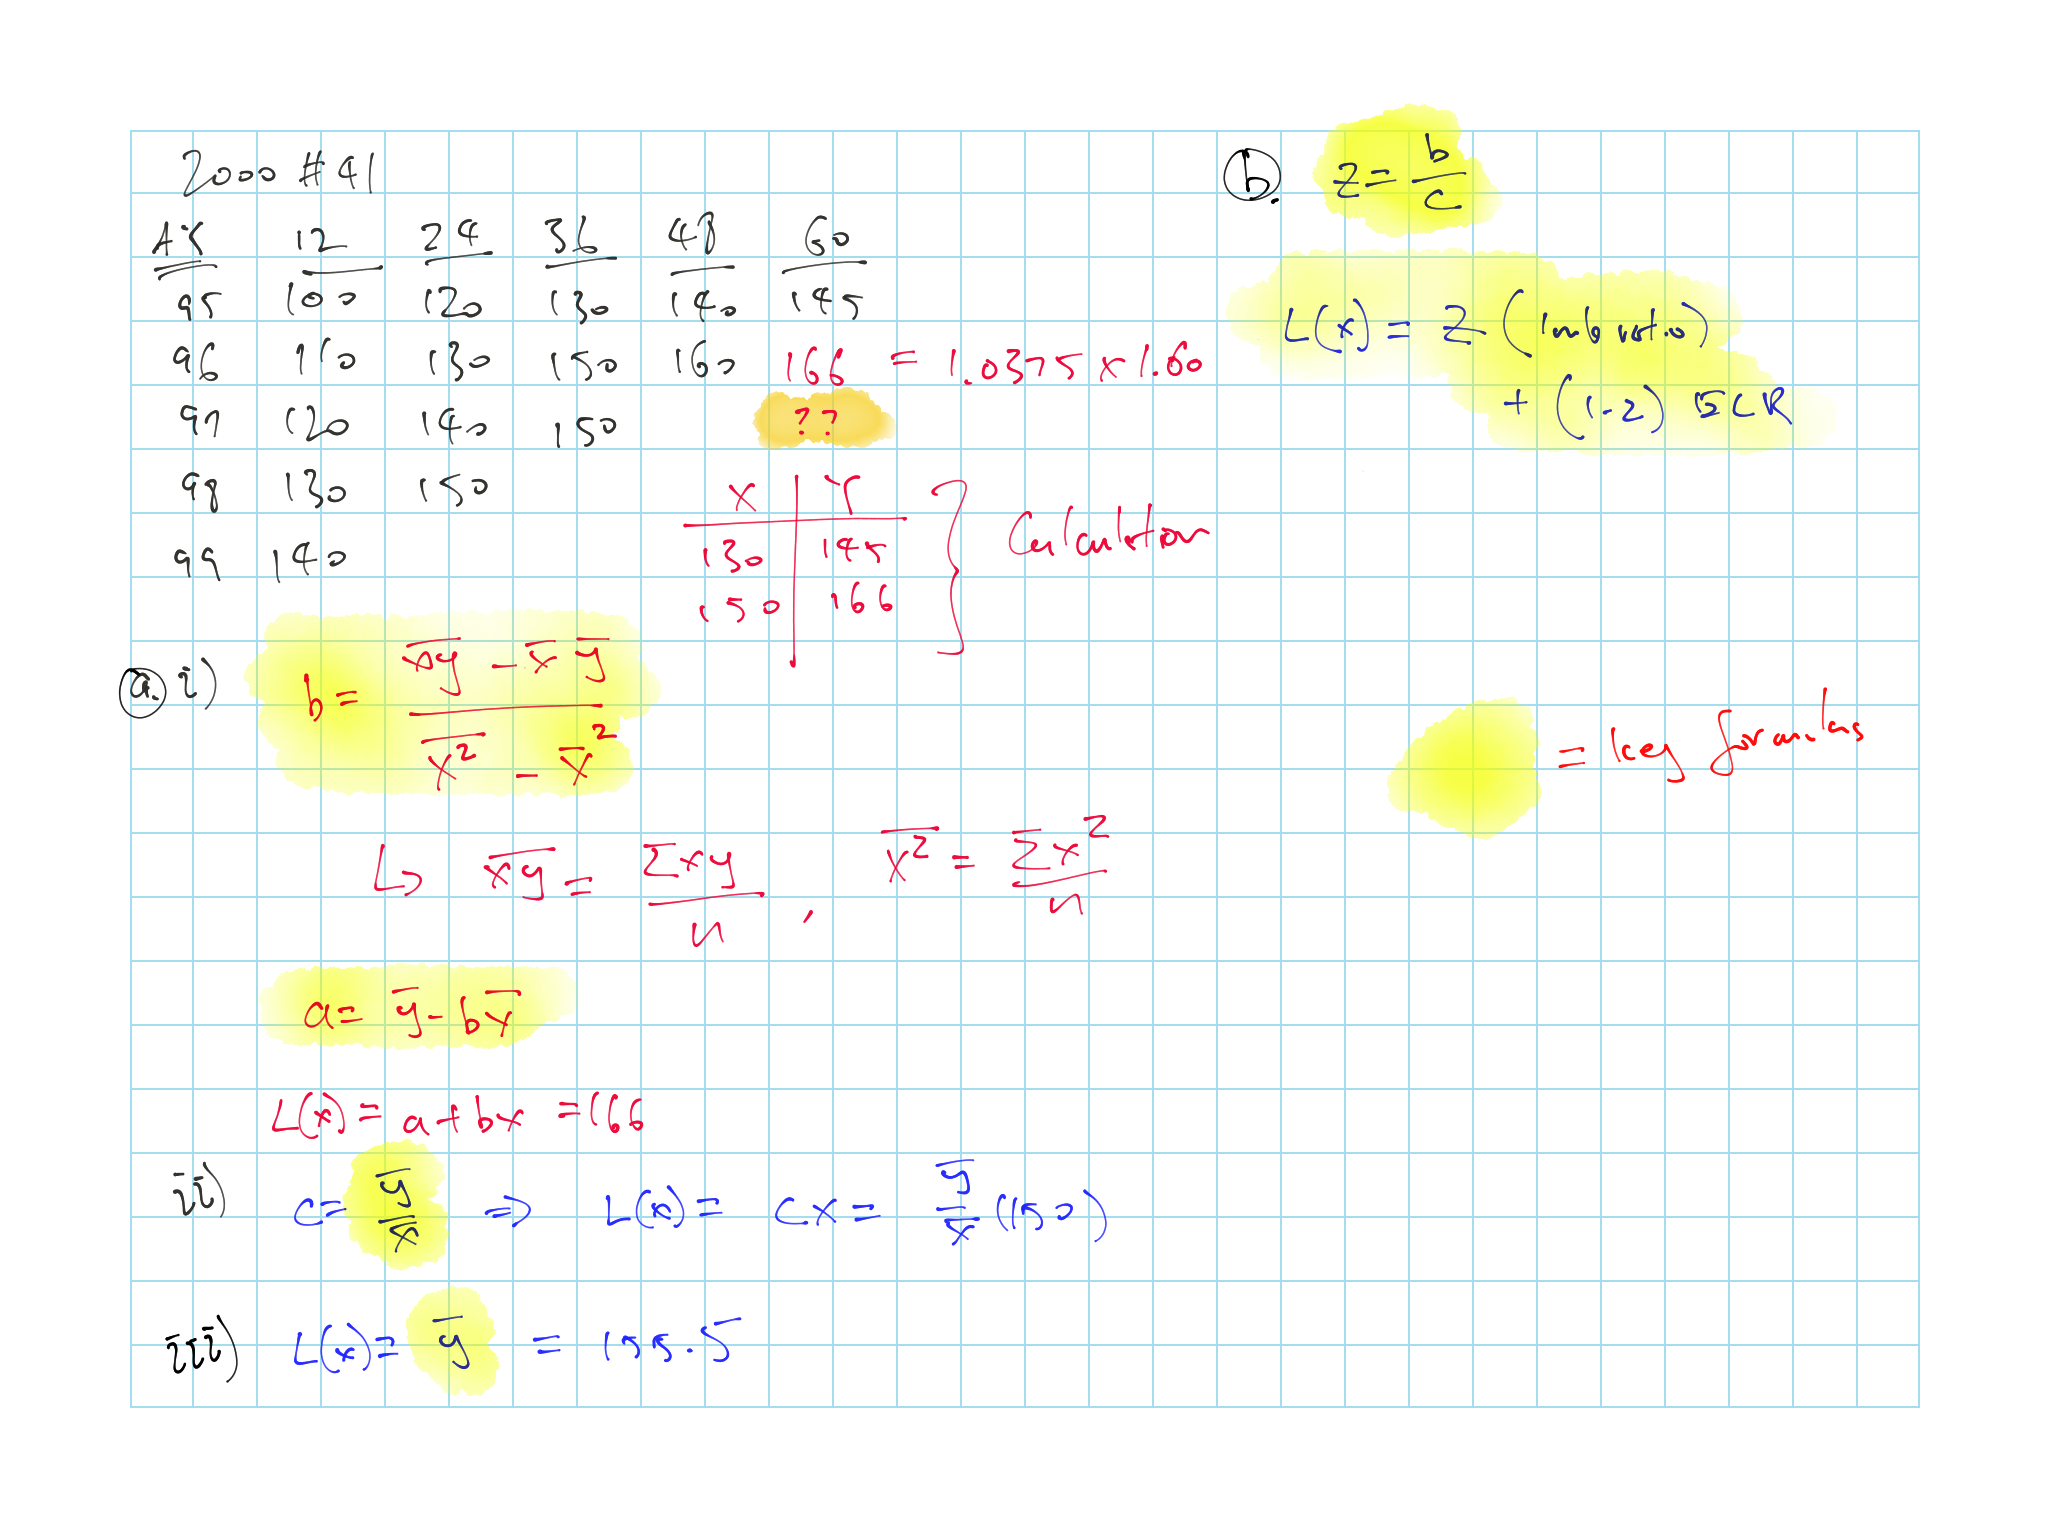 2000 #41
AY 12 24 36 48 60
95 100 120 130 140 145
96 110 130 150 160 166 = 1.0375 x 1.60
97 120 140 150 ??
98 130 150
99 140
X Y
130 145
150 166
} Calculation
a. i) b = (x̅y̅ - x̅ y̅) / (x̅²̅ - x̅²)
↳ x̅y̅ = Σxy / n , x̅²̅ = Σx² / n
a = y̅ - bx̅
L(x) = a + bx = 166
ii) c = y̅ / x̅ ⇒ L(x) = cx = y̅ / x̅ (150)
iii) L(x) = y̅ = 155.5
b. Z = b / c
L(x) = Z (
+ (1-Z) ECR
= key formulas